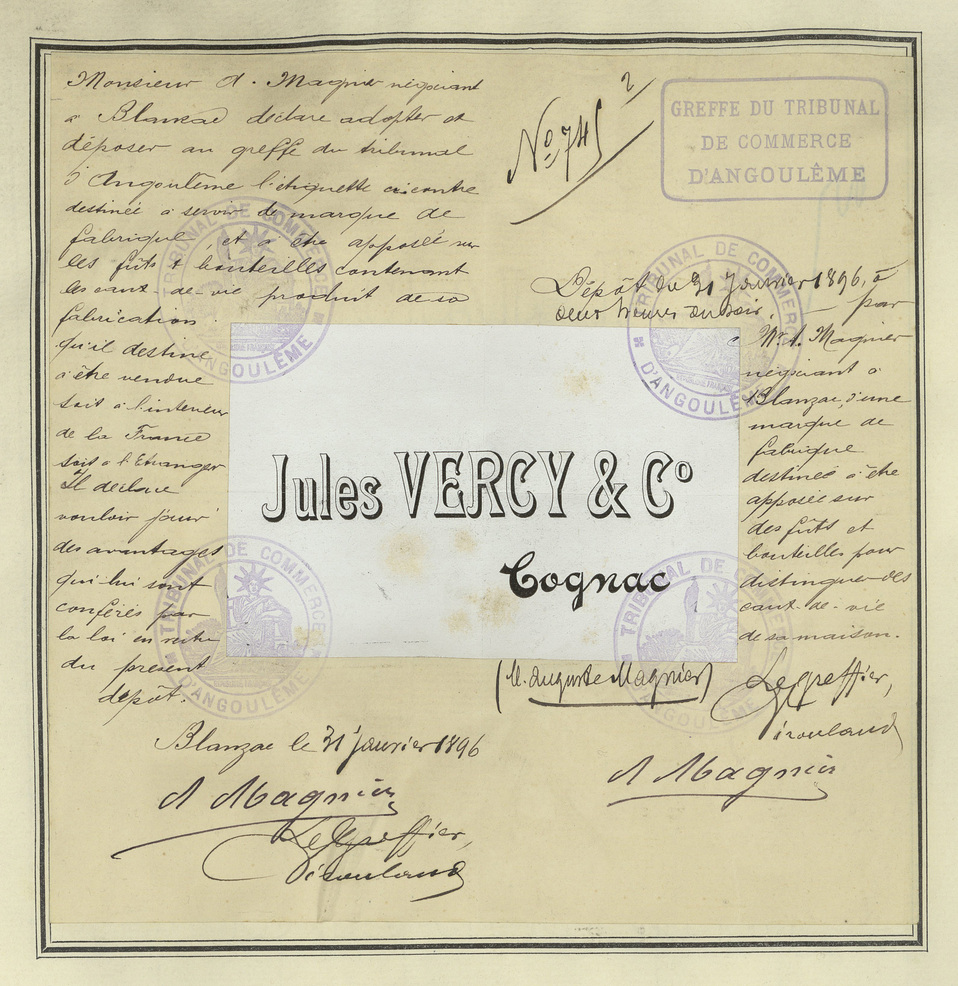 Monsieur A. Magnier négociant
à Blanzac déclare adopter et
déposer au greffe du tribunal
d'Angoulême l'étiquette ci contre
destinée à servir de marque de
fabrique, et à être apposée sur
les fûts & bouteilles contenant
les eaux-de-vie produit de sa
fabrication.
qu'il destine
à être vendue
soit à l'intérieur
de la France
soit à l'Etranger
Il déclare
vouloir jouir
des avantages
qui lui sont
conférés par
la loi en vertu
du présent
dépôt.
Blanzac le 31 janvier 1896
A Magnier
Le Greffier,
No 745
2
GREFFE DU TRIBUNAL
DE COMMERCE
D'ANGOULÊME
Dépôt du 31 Janvier 1896, à
deux heures du soir, par
Mr. A. Magnier
négociant à
Blanzac, d'une
marque de
fabrique
destinée à être
apposée sur
des fûts et
bouteilles pour
distinguer des
eaux-de-vie
de sa maison.
Jules VERCY & Co
Cognac
(M. Auguste Magnier)
Le Greffier,
A Magnier
TRIBUNAL DE COMMERCE
D'ANGOULÊME
TRIBUNAL DE COMMERCE
D'ANGOULÊME
TRIBUNAL DE COMMERCE
D'ANGOULÊME
TRIBUNAL DE COMMERCE
D'ANGOULÊME